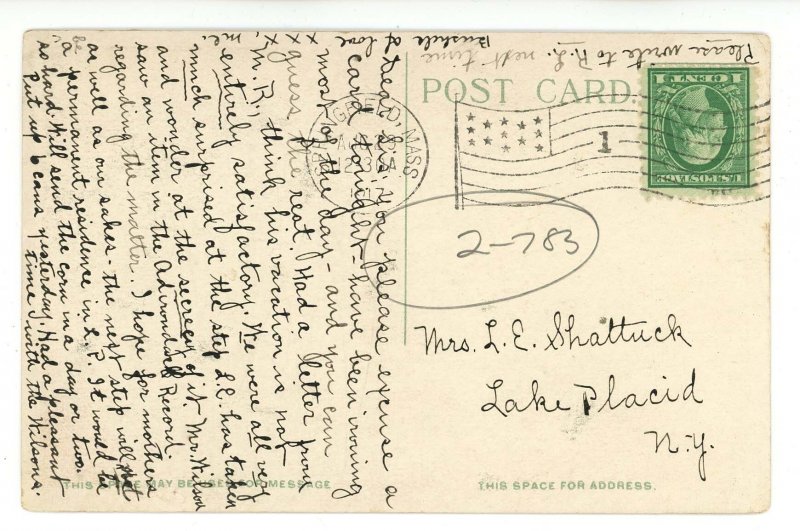 Please write to R.L. next time
Bushels of love
xxx, me.
POST CARD.
1 CENT 1
U.S. POSTAGE
SPRINGFIELD, MASS
12 30 A
17
1
2-783
Dear Sis: Will you please excuse a
card tonight - have been ironing
most of the day - and you can
guess the rest. Had a letter from
"M.R.", think his vacation is not
entirely satisfactory. We were all very
much surprised at the step L.E. has taken
and wonder at the secrecy of it. Mr. Wilson
saw an item in the Adirondack Record
regarding the matter. I hope for mothers
as well as our sakes the next step will not
be
a permanent residence in L.P. It would be
so hard. Will send the corn in a day or two.
Put up 6 cans yesterday. Had a pleasant
time with the Wilsons.
Mrs. L. E. Shattuck
Lake Placid
N.Y.
THIS SPACE MAY BE USED FOR MESSAGE
THIS SPACE FOR ADDRESS.